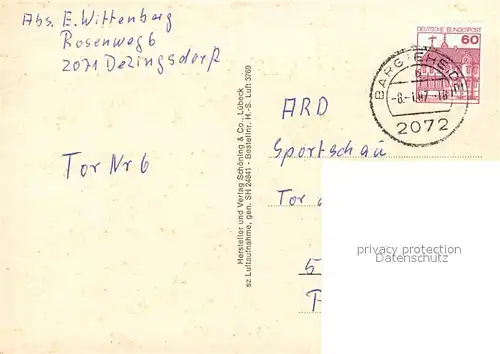 Abs. E. Wittenberg
Rosenweg 6
2071 Delingsdorf
Tor Nr 6
Hersteller und Verlag Schöning & Co., Lübeck
sz Luftaufnahme, gen. SH 24841 - Bestellnr. H.-S. Luft 3769
DEUTSCHE BUNDESPOST
60
BARGTEHEIDE
2072
ARD
Sportschau
Tor
5
privacy protection
AnsichtskartenVersand.com